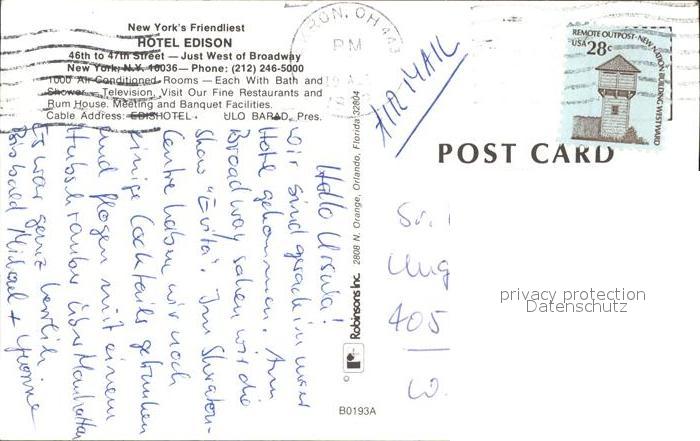 New York's Friendliest
HOTEL EDISON
46th to 47th Street — Just West of Broadway
New York, N.Y. 10036 — Phone: (212) 246-5000
1000 Air Conditioned Rooms — Each With Bath and
Shower — Television. Visit Our Fine Restaurants and
Rum House. Meeting and Banquet Facilities.
Cable Address: EDISHOTEL ULO BARAD, Pres.
RON, OH 443
PM
AIR MAIL
REMOTE OUTPOST·NEW NATION BUILDING WESTWARD
USA 28c
POST CARD
Hallo Ursula!
wir sind gerade in unser
Hotel gekommen. Am
Broadway sahen wir die
Show "Evita". Im Sheraton-
Centre haben wir noch
einige Cocktails getrunken
und flogen mit einem
Hubschrauber über Manhattan
Es war ganz herrlich
Bis bald Michael + Yvonne
Robinsons Inc. 2808 N. Orange, Orlando, Florida 32804
B0193A
405
privacy protection
Datenschutz